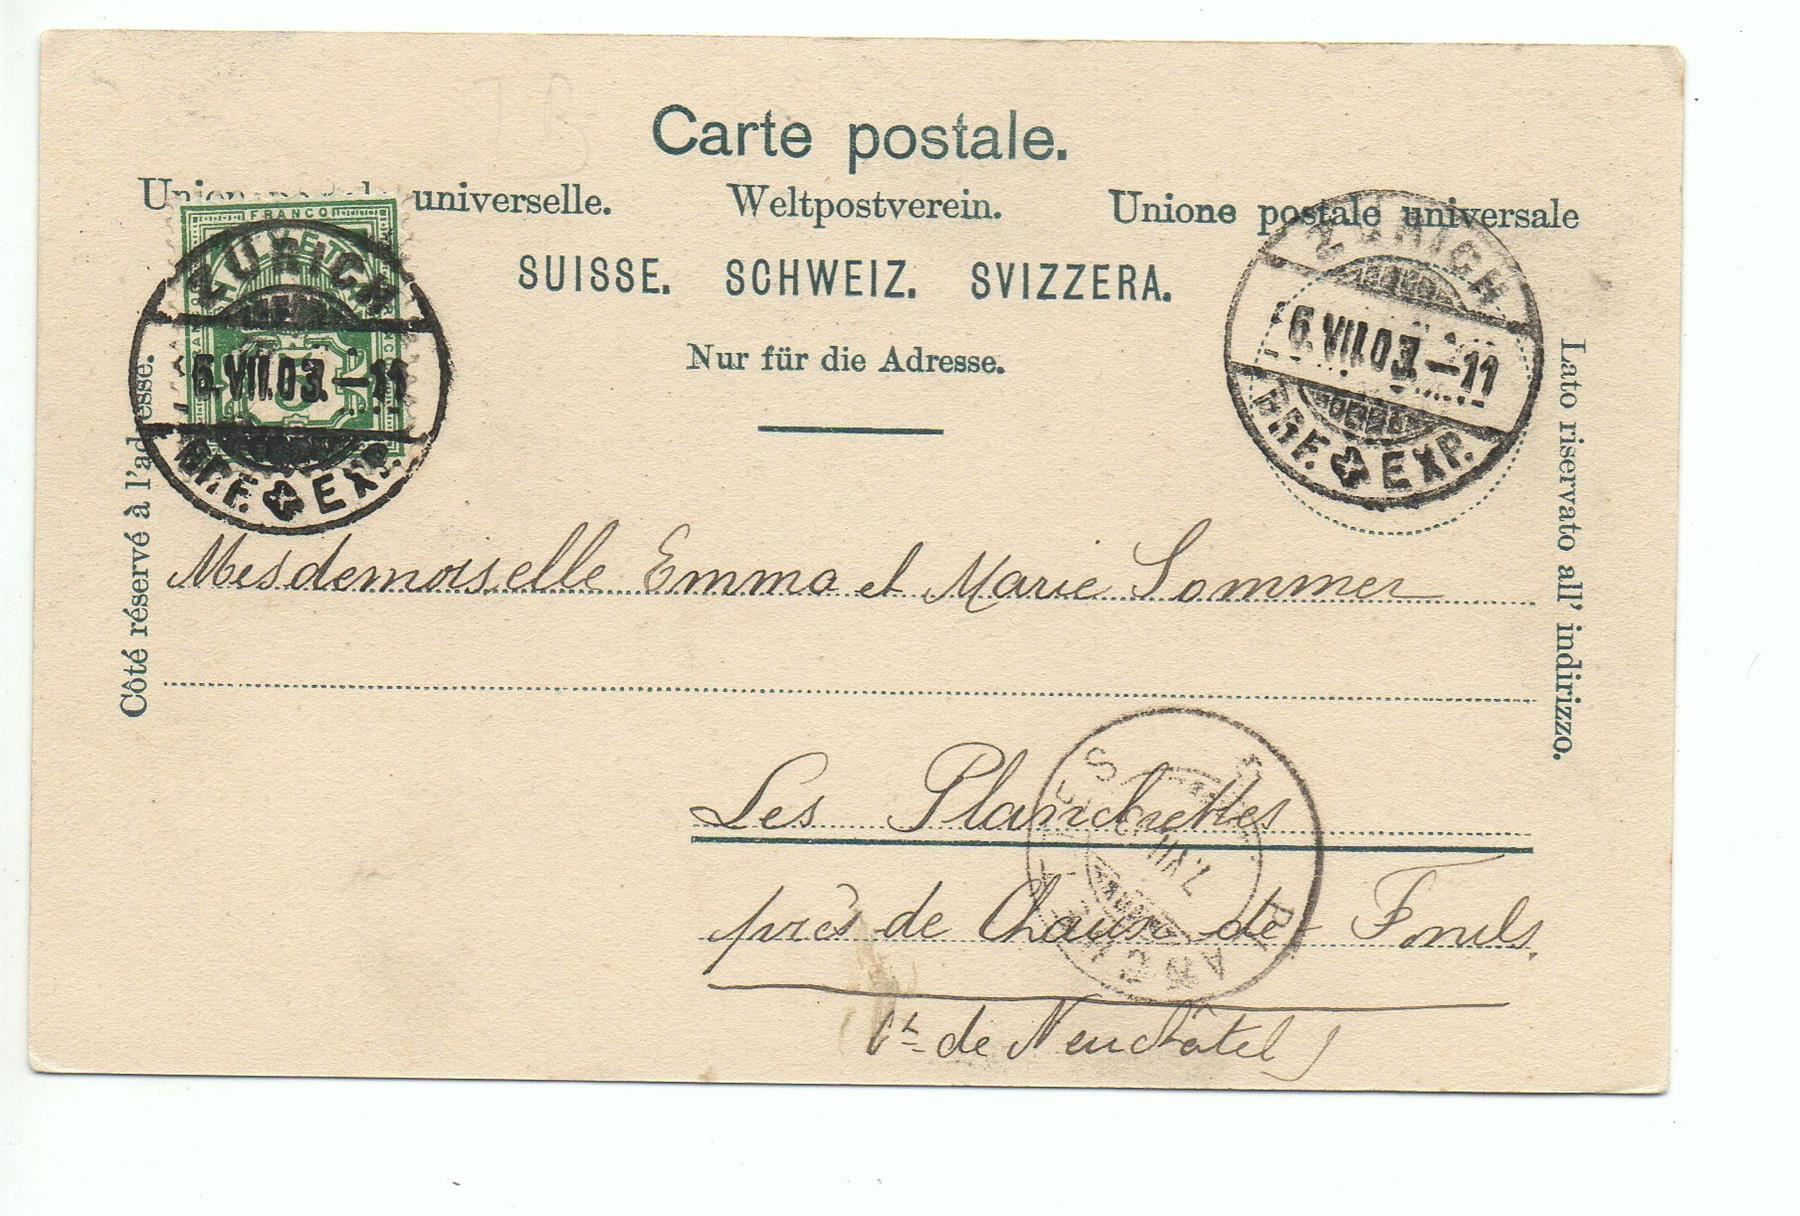 Carte postale.
Union postale universelle. Weltpostverein. Unione postale universale
SUISSE. SCHWEIZ. SVIZZERA.
Nur für die Adresse.
Côté réservé à l'adresse.
Lato riservato all' indirizzo.
FRANCO
HELVETIA
ZÜRICH
6.VII.03.–11
BRF. EXP.
ZÜRICH
6.VII.03.–11
BRF. EXP.
Mesdemoiselle Emma et Marie Sommer
Les Planchettes
près de Chaux-de-Fonds.
Ct de Neuchâtel)
7.VII